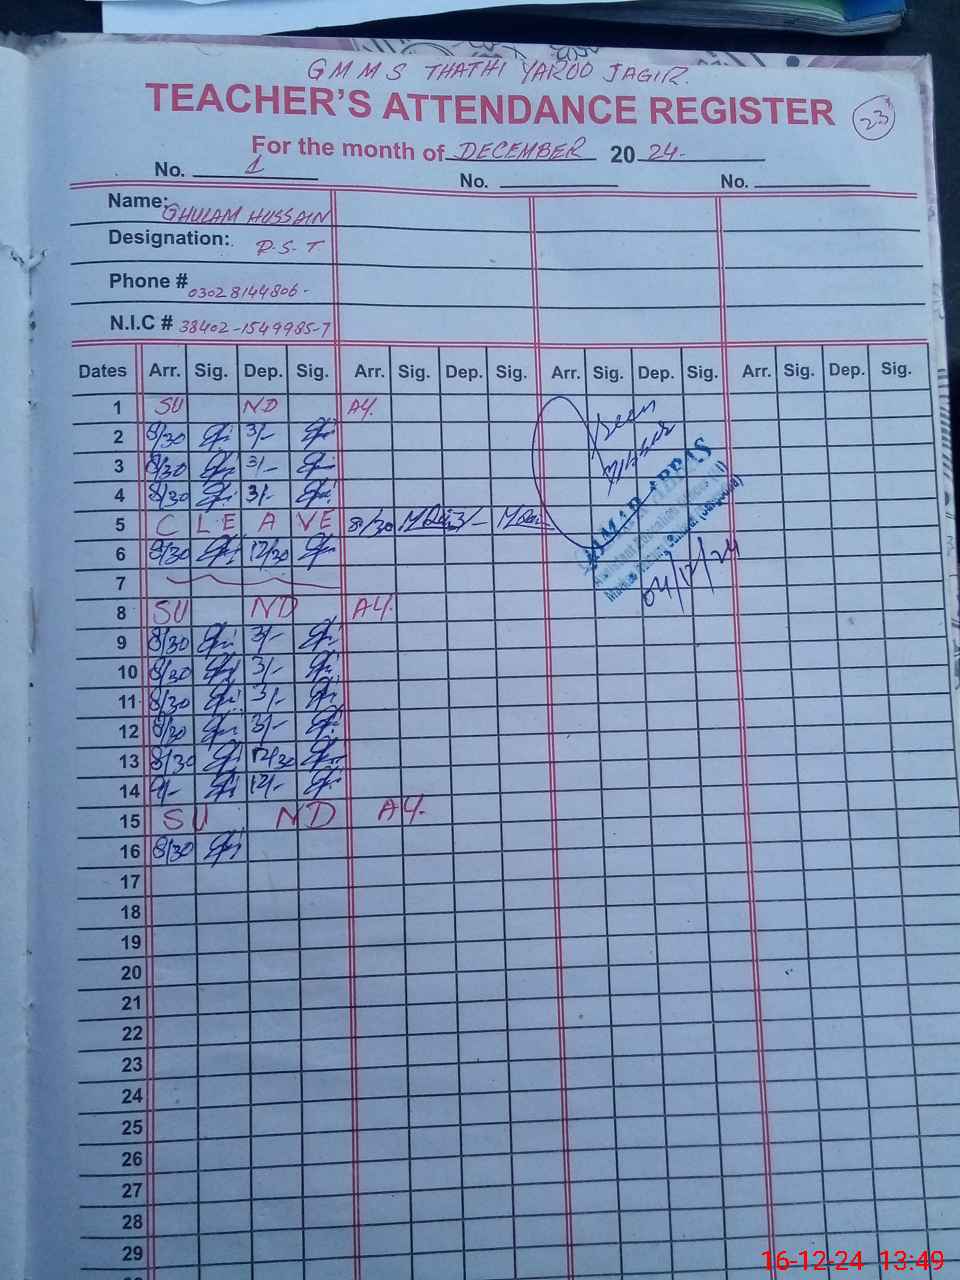 G M M S THATHI YAROO JAGIR.
TEACHER'S ATTENDANCE REGISTER
23
For the month of DECEMBER 20 24-
No. 1 No. No.
Name: GHULAM HUSSAIN
Designation: P.S.T
Phone # 03028144806-
N.I.C # 38402-1549985-7
Dates Arr. Sig. Dep. Sig. Arr. Sig. Dep. Sig. Arr. Sig. Dep. Sig. Arr. Sig. Dep. Sig.
1 SU ND AY.
2 8/30 3/-
3 8/30 3/-
4 8/30 3/-
5 C LE A VE 8/30 3/-
6 8/30 12/30
7
8 SU ND AY.
9 8/30 3/-
10 8/30 3/-
11 8/30 3/-
12 8/30 3/-
13 8/30 12/30
14 9/- 12/-
15 SU ND AY.
16 8/30
17
18
19
20
21
22
23
24
25
26
27
28
29
Seen
ABBAS
04/12/24
16-12-24 13:49